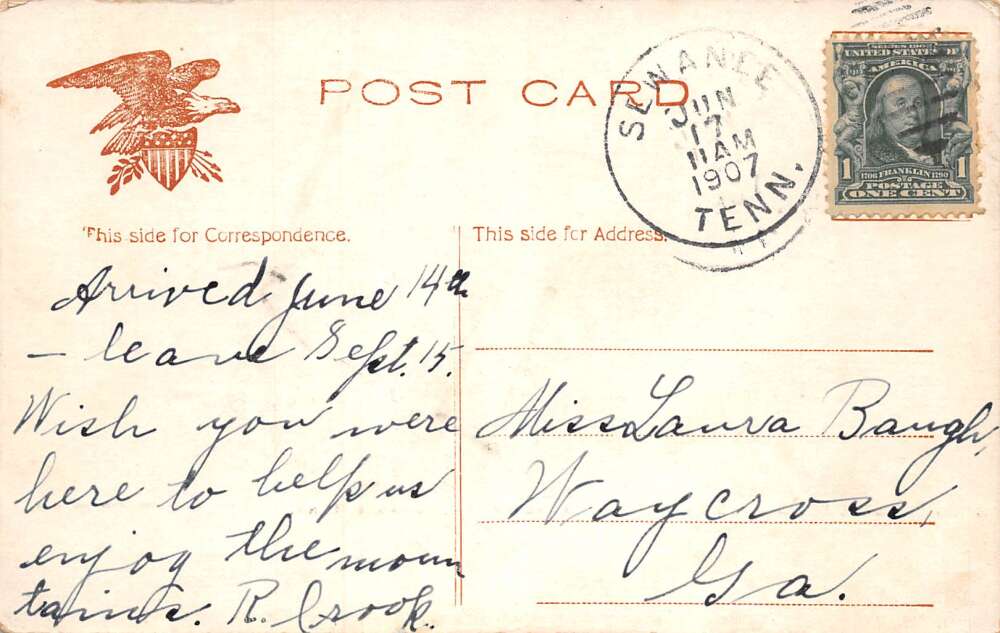 POST CARD
SEWANEE
JUN
17
11 AM
1907
TENN.
SERIES 1902
UNITED STATES OF
AMERICA
1 1
1706 FRANKLIN 1790
POSTAGE
ONE CENT
This side for Correspondence.
Arrived June 14th
– leave Sept. 15.
Wish you were
here to help us
enjoy the moun
tains. R. Crook.
This side for Address.
Miss Laura Baugh,
Waycross,
Ga.